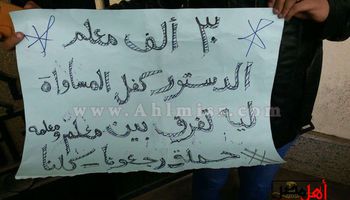 ٣٠ ألف معلم
الدستور كفل المساواة
ليه تفرق بين معلم ومعلمه
حملة رجعونا - كلنا
www.Ahlmisr.com
أهل مصر